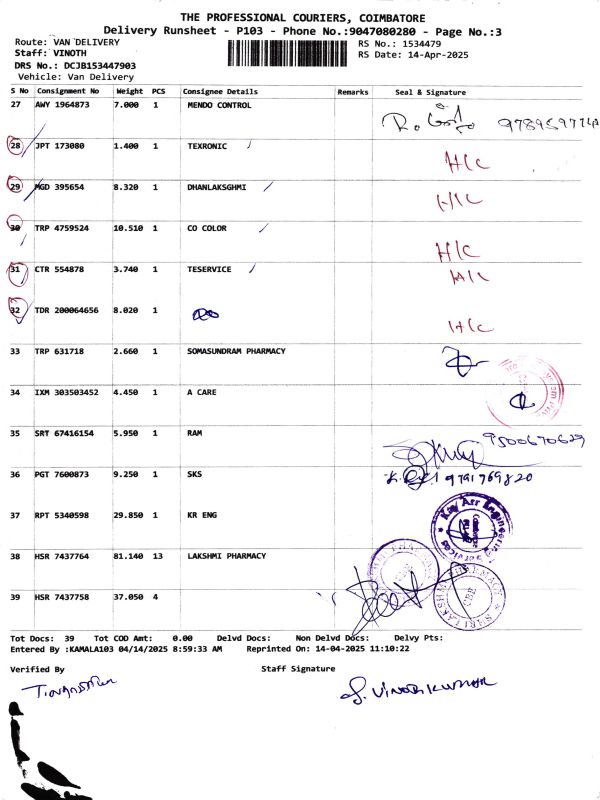 THE PROFESSIONAL COURIERS, COIMBATORE
Delivery Runsheet - P103 - Phone No.:9047080280 - Page No.:3
Route: VAN DELIVERY RS No.: 1534479
Staff: VINOTH RS Date: 14-Apr-2025
DRS No.: DCJB153447903
Vehicle: Van Delivery
S No Consignment No Weight PCS Consignee Details Remarks Seal & Signature
27 AWY 1964873 7.000 1 MENDO CONTROL
28 JPT 173080 1.400 1 TEXRONIC H/C
29 MGD 395654 8.320 1 DHANLAKSGHMI H/C
30 TRP 4759524 10.510 1 CO COLOR H/C
31 CTR 554878 3.740 1 TESERVICE H/C
32 TDR 200064656 8.020 1 H/C
33 TRP 631718 2.660 1 SOMASUNDRAM PHARMACY
34 IXM 303503452 4.450 1 A CARE
35 SRT 67416154 5.950 1 RAM 9500670629
36 PGT 7600873 9.250 1 SKS 9791769820
37 RPT 5340598 29.850 1 KR ENG Kay Arr Engineering Services
38 HSR 7437764 81.140 13 LAKSHMI PHARMACY
39 HSR 7437758 37.050 4 SRI LAKSHMI PHARMACY CBE
Tot Docs: 39 Tot COD Amt: 0.00 Delvd Docs: Non Delvd Docs: Delvy Pts:
Entered By :KAMALA103 04/14/2025 8:59:33 AM Reprinted On: 14-04-2025 11:10:22
Verified By Staff Signature
S. VINOTHKUMAR